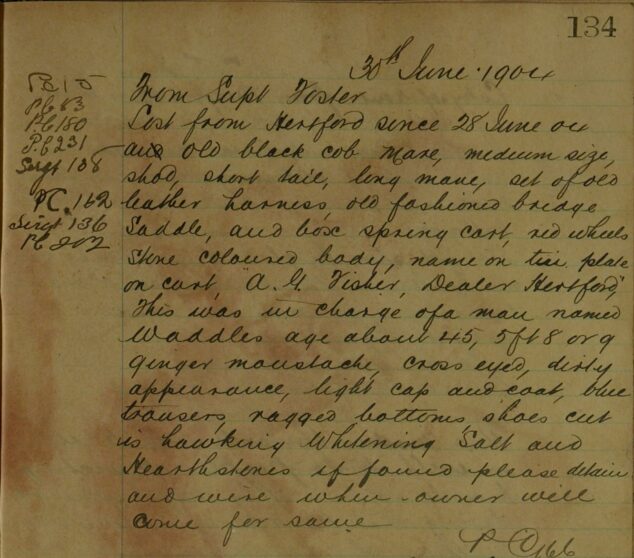 134
30th June 1904
From Supt Foster
Lost from Hertford since 28 June 04
an old black cob mare, medium size,
shod, short tail, long mane, set of old
leather harness, old fashioned bridge
Saddle, and box spring cart, red wheels
Stone coloured body, name on tin plate
on cart, "A. G. Fisher, Dealer Hertford",
This was in charge of a man named
Waddles age about 45, 5ft 8 or 9
ginger moustache, cross eyed, dirty
appearance, light cap and coat, blue
trousers, ragged bottoms, shoes cut
is hawking Whitening Salt and
Hearthstones if found please detain
and wire when owner will
come for same
P.C. 83
P.C. 180
P.C. 231
Sergt 108
PC. 162
Sergt 136
PC 202